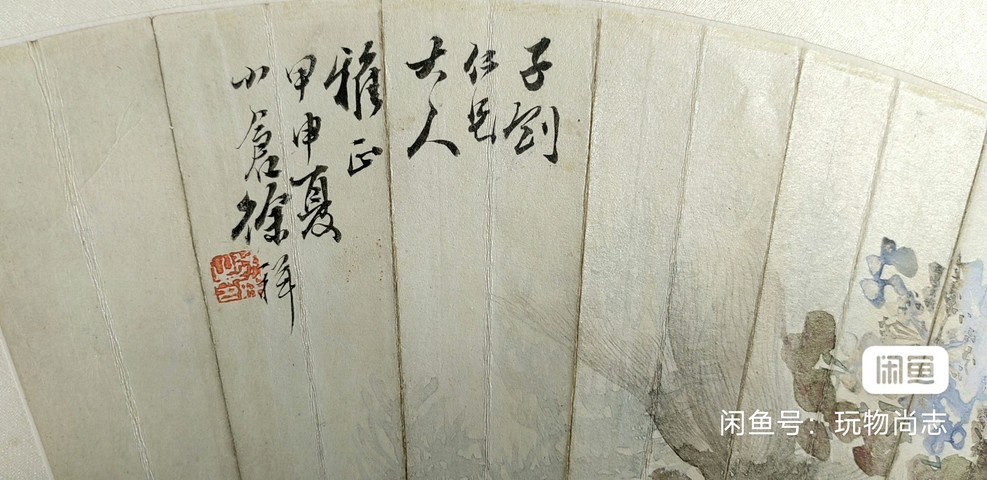 子剑
仁兄
大人
雅正
甲申夏
小仓徐祥
闲鱼
闲鱼号：玩物尚志